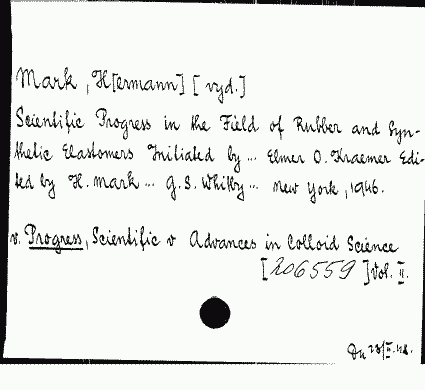 Mark, H[ermann] [vyd.]
Scientific Progress in the Field of Rubber and Syn-
thetic Elastomers Initiated by ... Elmer O. Kraemer Edi-
ted by H. Mark ... G. S. Whitby ... New York, 1946.
v. Progress, Scientific v Advances in Colloid Science
[206559] Vol. II.
Du 28/II.48.